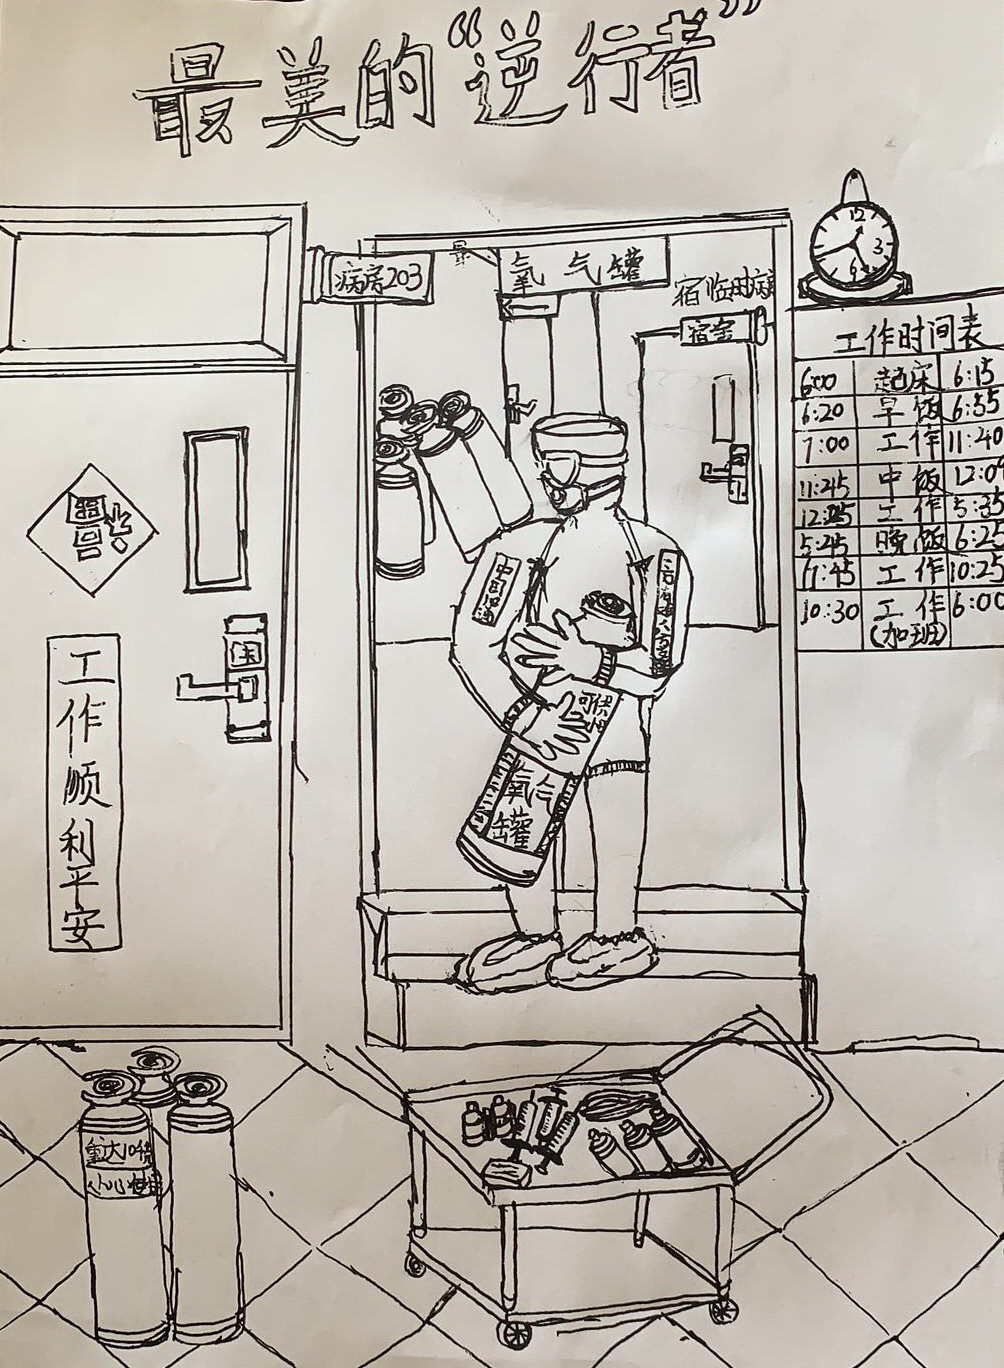 最美的“逆行者”
病房203
氧气罐
宿舍
12
3
6
工作时间表
6:00 起床 6:15
6:20 早饭 6:55
7:00 工作 11:40
11:45 中饭
12:25 工作 5:35
5:45 晚饭 6:25
工作 10:25
10:30 工作 6:00
(加班)
福
工作顺利平安
中国
可供
氧气罐
重达10
小心